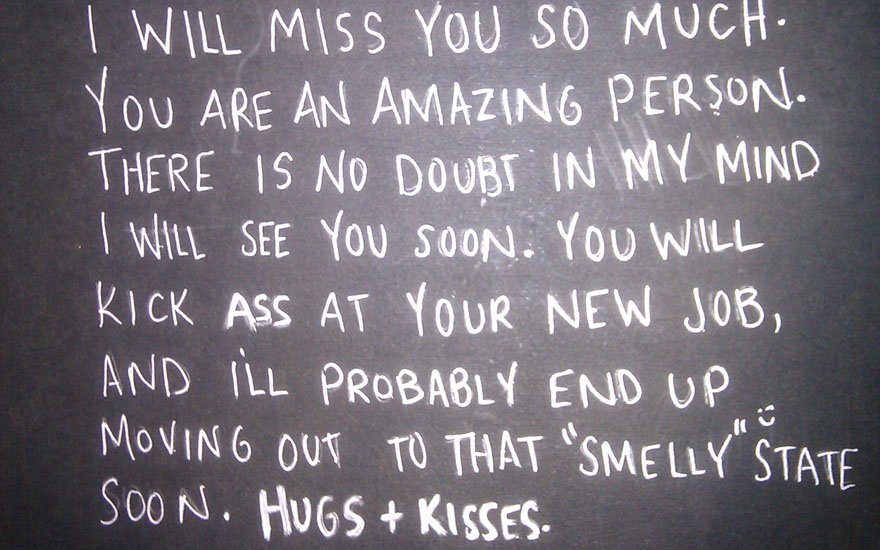 I WILL MISS YOU SO MUCH.
YOU ARE AN AMAZING PERSON.
THERE IS NO DOUBT IN MY MIND
I WILL SEE YOU SOON. YOU WILL
KICK ASS AT YOUR NEW JOB,
AND I'LL PROBABLY END UP
MOVING OUT TO THAT "SMELLY" STATE
SOON. HUGS + KISSES.